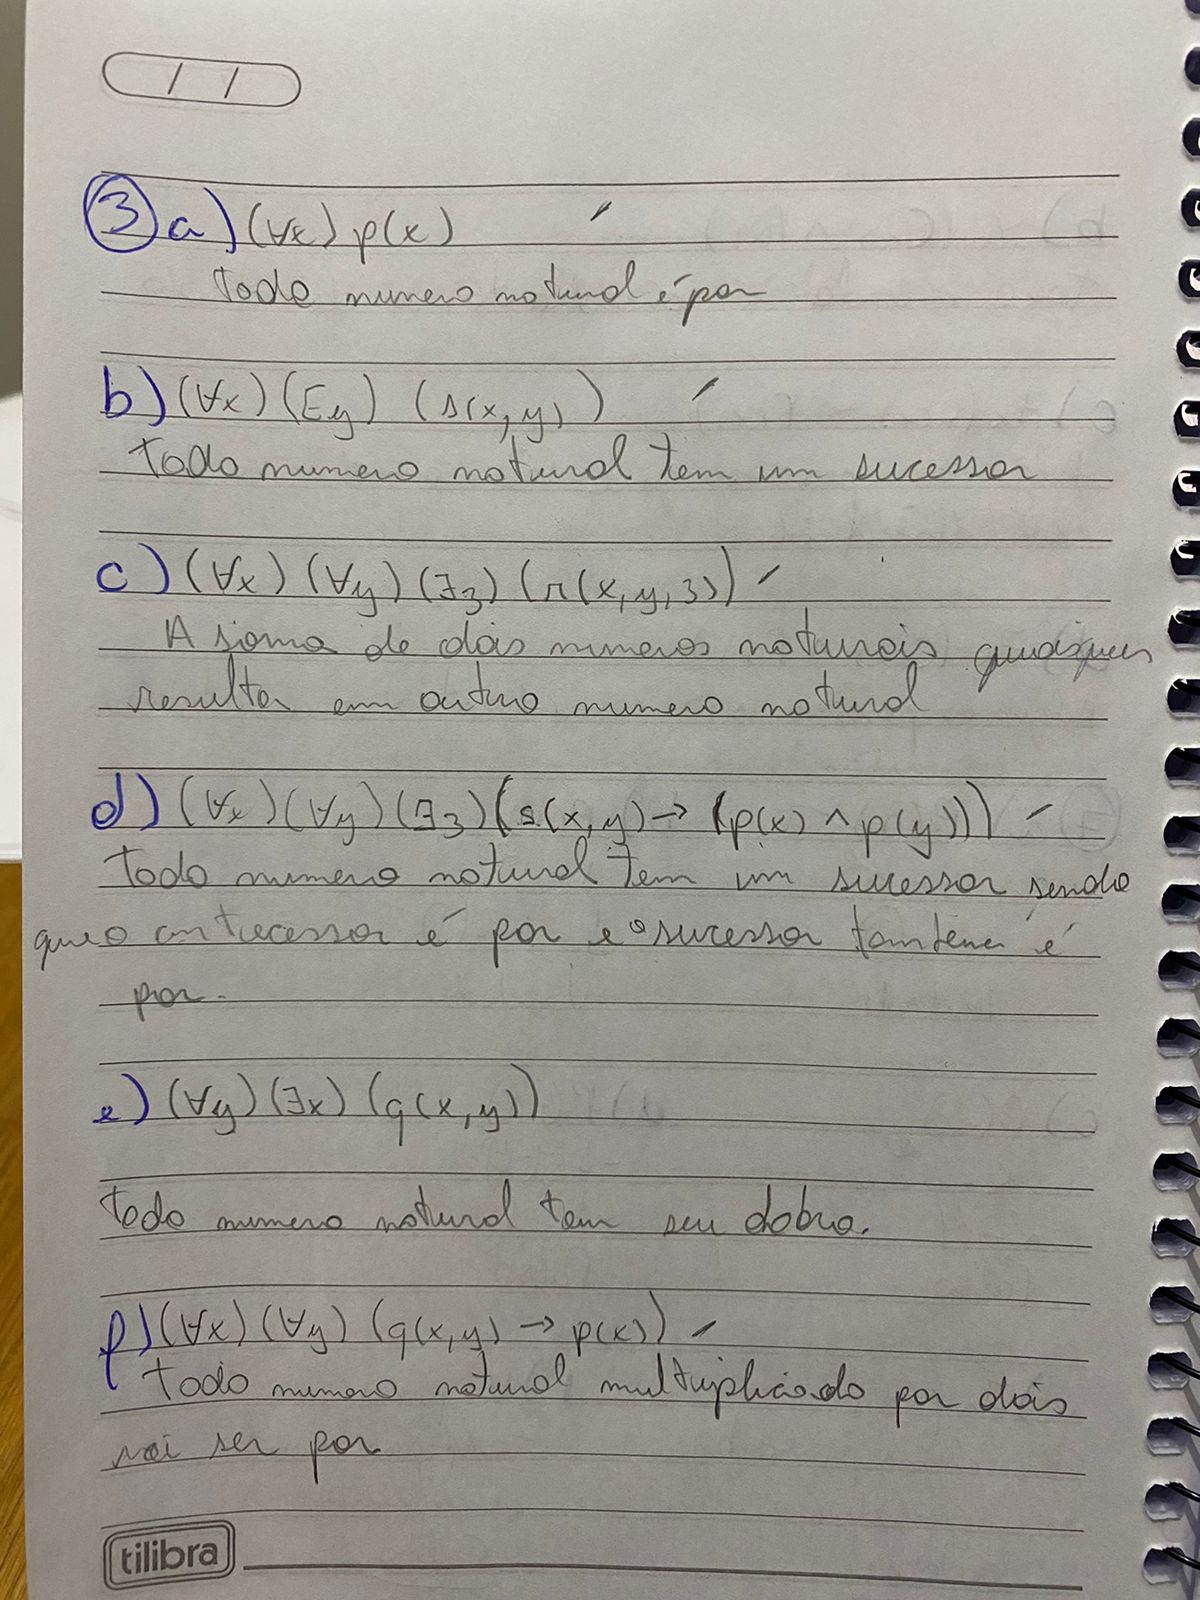 / /
3 a) (∀x) p(x)
Todo numero natural é par
b) (∀x) (Ey) (s(x,y))
Todo numero natural tem um sucessor
c) (∀x) (∀y) (∃z) (r(x,y,z))
A soma de dois numeros naturais quaisquer
resulta em outro numero natural
d) (∀x) (∀y) (∃z) (s(x,y) → (p(x) ∧ p(y)))
Todo numero natural tem um sucessor sendo
que o antecessor é par e o sucessor também é
par.
e) (∀y) (∃x) (q(x,y))
Todo numero natural tem seu dobro.
f) (∀x) (∀y) (q(x,y) → p(x))
Todo numero natural multiplicado por dois
vai ser par
tilibra